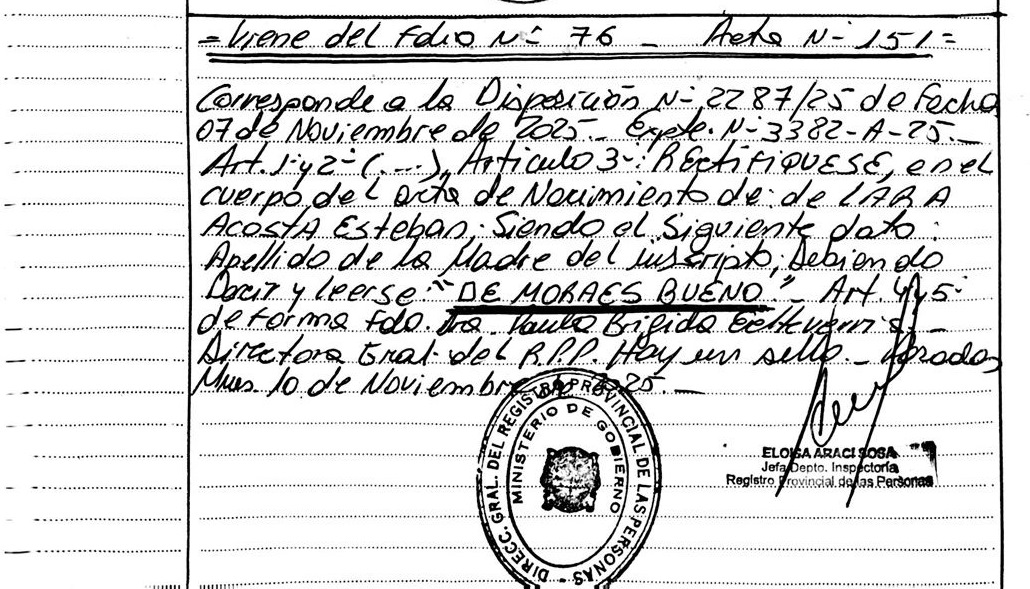 = Viene del Folio N- 76 - Acta N- 151 =
Corresponde a la Disposición N- 2287/25 de Fecha
07 de Noviembre de 2025.- Expte. N- 3382-A-25.-
Art. 1- y 2- (...), Artículo 3-: RECTIFIQUESE, en el
cuerpo del acta de Nacimiento de: de LARA
ACOSTA Esteban; Siendo el Siguiente dato:
Apellido de la Madre del inscripto; Debiendo
Decir y leerse: "DE MORAES BUENO".- Art. 4 y 5-
de forma Fdo. Dra. Paula Brigida
Directora Gral. del R.P.P. Hay un sello.- Posadas,
Mnes. 10 de Noviembre 2025.-
DIRECC. GRAL. DEL REGISTRO PROVINCIAL DE LAS PERSONAS -
MINISTERIO DE GOBIERNO
ELOISA ARACI SOSA
Jefa Depto. Inspectoría
Registro Provincial de las Personas